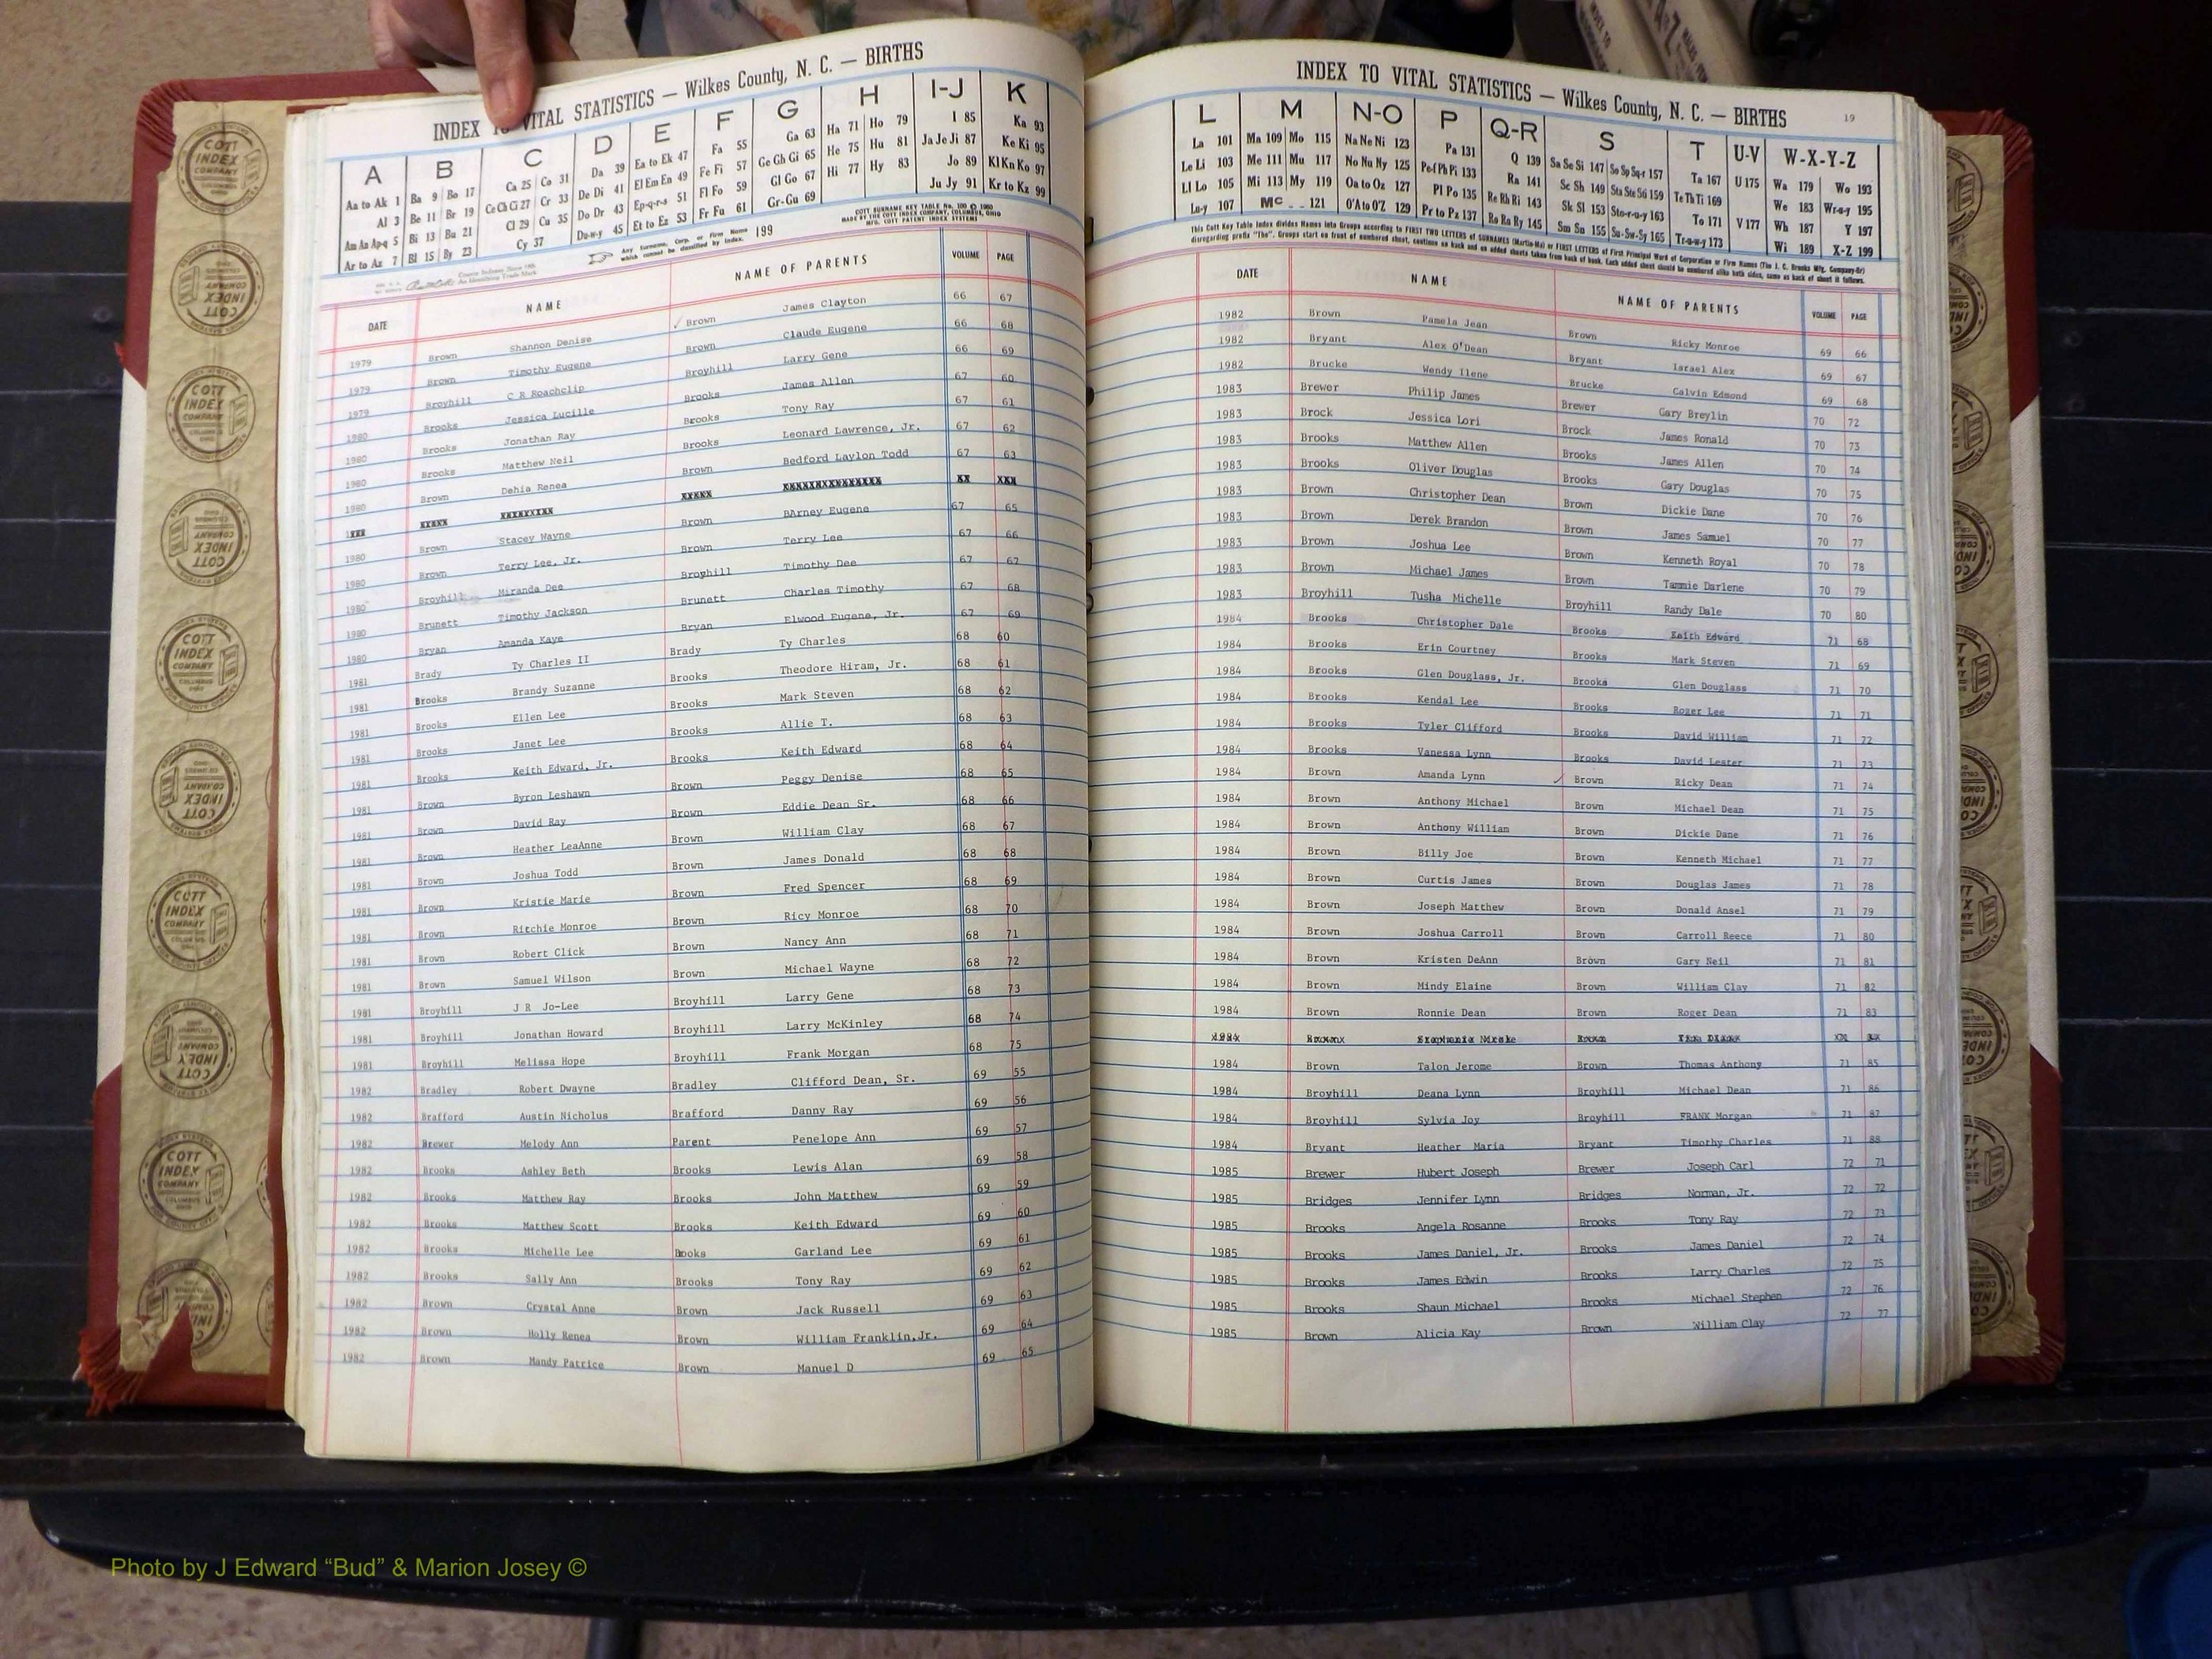 INDEX TO VITAL STATISTICS — Wilkes County, N. C. — BIRTHS
A B C D E F G H I-J K
Aa to Ak 1 Ba 9 Bo 17 Ca 25 Co 31 Da 39 Ea to Ek 47 Fa 55 Ga 63 Ha 71 Ho 79 I 85 Ka 93
Al 3 Be 11 Br 19 Ce Ch Ci 27 Cr 33 De Di 41 El Em En 49 Fe Fi 57 Ge Gh Gi 65 He 75 Hu 81 Ja Je Ji 87 Ke Ki 95
Am An Ap-q 5 Bi 13 Bu 21 Cl 29 Cu 35 Do Dr 43 Ep-q-r-s 51 Fl Fo 59 Gl Go 67 Hi 77 Hy 83 Jo 89 Kl Kn Ko 97
Ar to Az 7 Bl 15 By 23 Cy 37 Du-w-y 45 Et to Ez 53 Fr Fu 61 Gr-Gu 69 Ju Jy 91 Kr to Kz 99
Any Surname, Corp. or Firm Name which cannot be classified by Index. 199
COTT SURNAME KEY TABLE No. 100 © 1960
MADE BY THE COTT INDEX COMPANY, COLUMBUS, OHIO
MFG. COTT PATENT INDEX SYSTEMS
DATE NAME NAME OF PARENTS VOLUME PAGE
1979 Brown Shannon Denise Brown James Clayton 66 67
1979 Brown Timothy Eugene Brown Claude Eugene 66 68
1979 Broyhill C R Roachclip Broyhill Larry Gene 66 69
1980 Brooks Jessica Lucille Brooks James Allen 67 60
1980 Brooks Jonathan Ray Brooks Tony Ray 67 61
1980 Brooks Matthew Neil Brooks Leonard Lawrence, Jr. 67 62
1980 Brown Dehia Renea Brown Bedford Laylon Todd 67 63
1xxx xxxxx xxxxxxxxx xxxxx xxxxxxxxxxxxxxxx xx xxx
1980 Brown Stacey Wayne Brown BArney Eugene 67 65
1980 Brown Terry Lee, Jr. Brown Terry Lee 67 66
1980 Broyhill Miranda Dee Broyhill Timothy Dee 67 67
1980 Brunett Timothy Jackson Brunett Charles Timothy 67 68
1980 Bryan Amanda Kaye Bryan Elwood Eugene, Jr 67 69
1981 Brady Ty Charles II Brady Ty Charles 68 60
1981 Brooks Brandy Suzanne Brooks Theodore Hiram, Jr. 68 61
1981 Brooks Ellen Lee Brooks Mark Steven 68 62
1981 Brooks Janet Lee Brooks Allie T. 68 63
1981 Brooks Keith Edward, Jr. Brooks Keith Edward 68 64
1981 Brown Byron Leshawn Brown Peggy Denise 68 65
1981 Brown David Ray Brown Eddie Dean Sr. 68 66
1981 Brown Heather LeaAnne Brown William Clay 68 67
1981 Brown Joshua Todd Brown James Donald 68 68
1981 Brown Kristie Marie Brown Fred Spencer 68 69
1981 Brown Ritchie Monroe Brown Ricy Monroe 68 70
1981 Brown Robert Click Brown Nancy Ann 68 71
1981 Brown Samuel Wilson Brown Michael Wayne 68 72
1981 Broyhill J R Jo-Lee Broyhill Larry Gene 68 73
1981 Broyhill Jonathan Howard Broyhill Larry McKinley 68 74
1981 Broyhill Melissa Hope Broyhill Frank Morgan 68 75
1982 Bradley Robert Dwayne Bradley Clifford Dean, Sr. 69 55
1982 Brafford Austin Nicholus Brafford Danny Ray 69 56
1982 Brewer Melody Ann Parent Penelope Ann 69 57
1982 Brooks Ashley Beth Brooks Lewis Alan 69 58
1982 Brooks Matthew Ray Brooks John Matthew 69 59
1982 Brooks Matthew Scott Brooks Keith Edward 69 60
1982 Brooks Michelle Lee Brooks Garland Lee 69 61
1982 Brooks Sally Ann Brooks Tony Ray 69 62
1982 Brown Crystal Anne Brown Jack Russell 69 63
1982 Brown Holly Renea Brown William Franklin,Jr. 69 64
1982 Brown Mandy Patrice Brown Manuel D 69 65
INDEX TO VITAL STATISTICS — Wilkes County, N. C. — BIRTHS 19
L M N-O P Q-R S T U-V W-X-Y-Z
La 101 Ma 109 Mo 115 Na Ne Ni 123 Pa 131 Q 139 Sa Se Si 147 So Sp Sq-r 157 Ta 167 U 175 Wa 179 Wo 193
Le Li 103 Me 111 Mu 117 No Nu Ny 125 Pe Pf Ph Pi 133 Ra 141 Sc Sh 149 Sta Ste Sti 159 Te Th Ti 169 We 183 Wr-u-y 195
Ll Lo 105 Mi 113 My 119 Oa to Oz 127 Pl Po 135 Re Rh Ri 143 Sk Sl 153 Sto-r-u-y 163 To 171 V 177 Wh 187 Y 197
Lu-y 107 Mc 121 O'A to O'Z 129 Pr to Pz 137 Ro Ru Ry 145 Sm Sn 155 Su-Sw-Sy 165 Tr-u-w-y 173 Wi 189 X-Z 199
This Cott Key Table Index divides Names into Groups according to FIRST TWO LETTERS of SURNAMES (Martin-Ma) or FIRST LETTERS of First Principal Word of Corporation or Firm Names (The J. C. Brooks Mfg. Company-Br)
disregarding prefix "The". Groups start on front of numbered sheet, continue on back and on added sheets taken from back of book. Each added sheet should be numbered alike both sides, same as back of sheet it follows.
DATE NAME NAME OF PARENTS VOLUME PAGE
1982 Brown Pamela Jean Brown Ricky Monroe 69 66
1982 Bryant Alex O'Dean Bryant Israel Alex 69 67
1982 Brucke Wendy Ilene Brucke Calvin Edmond 69 68
1983 Brewer Philip James Brewer Gary Breylin 70 72
1983 Brock Jessica Lori Brock James Ronald 70 73
1983 Brooks Matthew Allen Brooks James Allen 70 74
1983 Brooks Oliver Douglas Brooks Gary Douglas 70 75
1983 Brown Christopher Dean Brown Dickie Dane 70 76
1983 Brown Derek Brandon Brown James Samuel 70 77
1983 Brown Joshua Lee Brown Kenneth Royal 70 78
1983 Brown Michael James Brown Tammie Darlene 70 79
1983 Broyhill Tusha Michelle Broyhill Randy Dale 70 80
1984 Brooks Christopher Dale Brooks Keith Edward 71 68
1984 Brooks Erin Courtney Brooks Mark Steven 71 69
1984 Brooks Glen Douglass, Jr. Brooks Glen Douglass 71 70
1984 Brooks Kendal Lee Brooks Roger Lee 71 71
1984 Brooks Tyler Clifford Brooks David William 71 72
1984 Brooks Vanessa Lynn Brooks David Lester 71 73
1984 Brown Amanda Lynn Brown Ricky Dean 71 74
1984 Brown Anthony Michael Brown Michael Dean 71 75
1984 Brown Anthony William Brown Dickie Dane 71 76
1984 Brown Billy Joe Brown Kenneth Michael 71 77
1984 Brown Curtis James Brown Douglas James 71 78
1984 Brown Joseph Matthew Brown Donald Ansel 71 79
1984 Brown Joshua Carroll Brown Carroll Reece 71 80
1984 Brown Kristen DeAnn Brown Gary Neil 71 81
1984 Brown Mindy Elaine Brown William Clay 71 82
1984 Brown Ronnie Dean Brown Roger Dean 71 83
1984 Brown Talon Jerome Brown Thomas Anthony 71 85
1984 Broyhill Deana Lynn Broyhill Michael Dean 71 86
1984 Broyhill Sylvia Joy Broyhill FRANK Morgan 71 87
1984 Bryant Heather Maria Bryant Timothy Charles 71 88
1985 Brewer Hubert Joseph Brewer Joseph Carl 72 71
1985 Bridges Jennifer Lynn Bridges Norman, Jr. 72 72
1985 Brooks Angela Rosanne Brooks Tony Ray 72 73
1985 Brooks James Daniel, Jr. Brooks James Daniel 72 74
1985 Brooks James Edwin Brooks Larry Charles 72 75
1985 Brooks Shaun Michael Brooks Michael Stephen 72 76
1985 Brown Alicia Kay Brown William Clay 72 77
Photo by J Edward “Bud” & Marion Josey ©